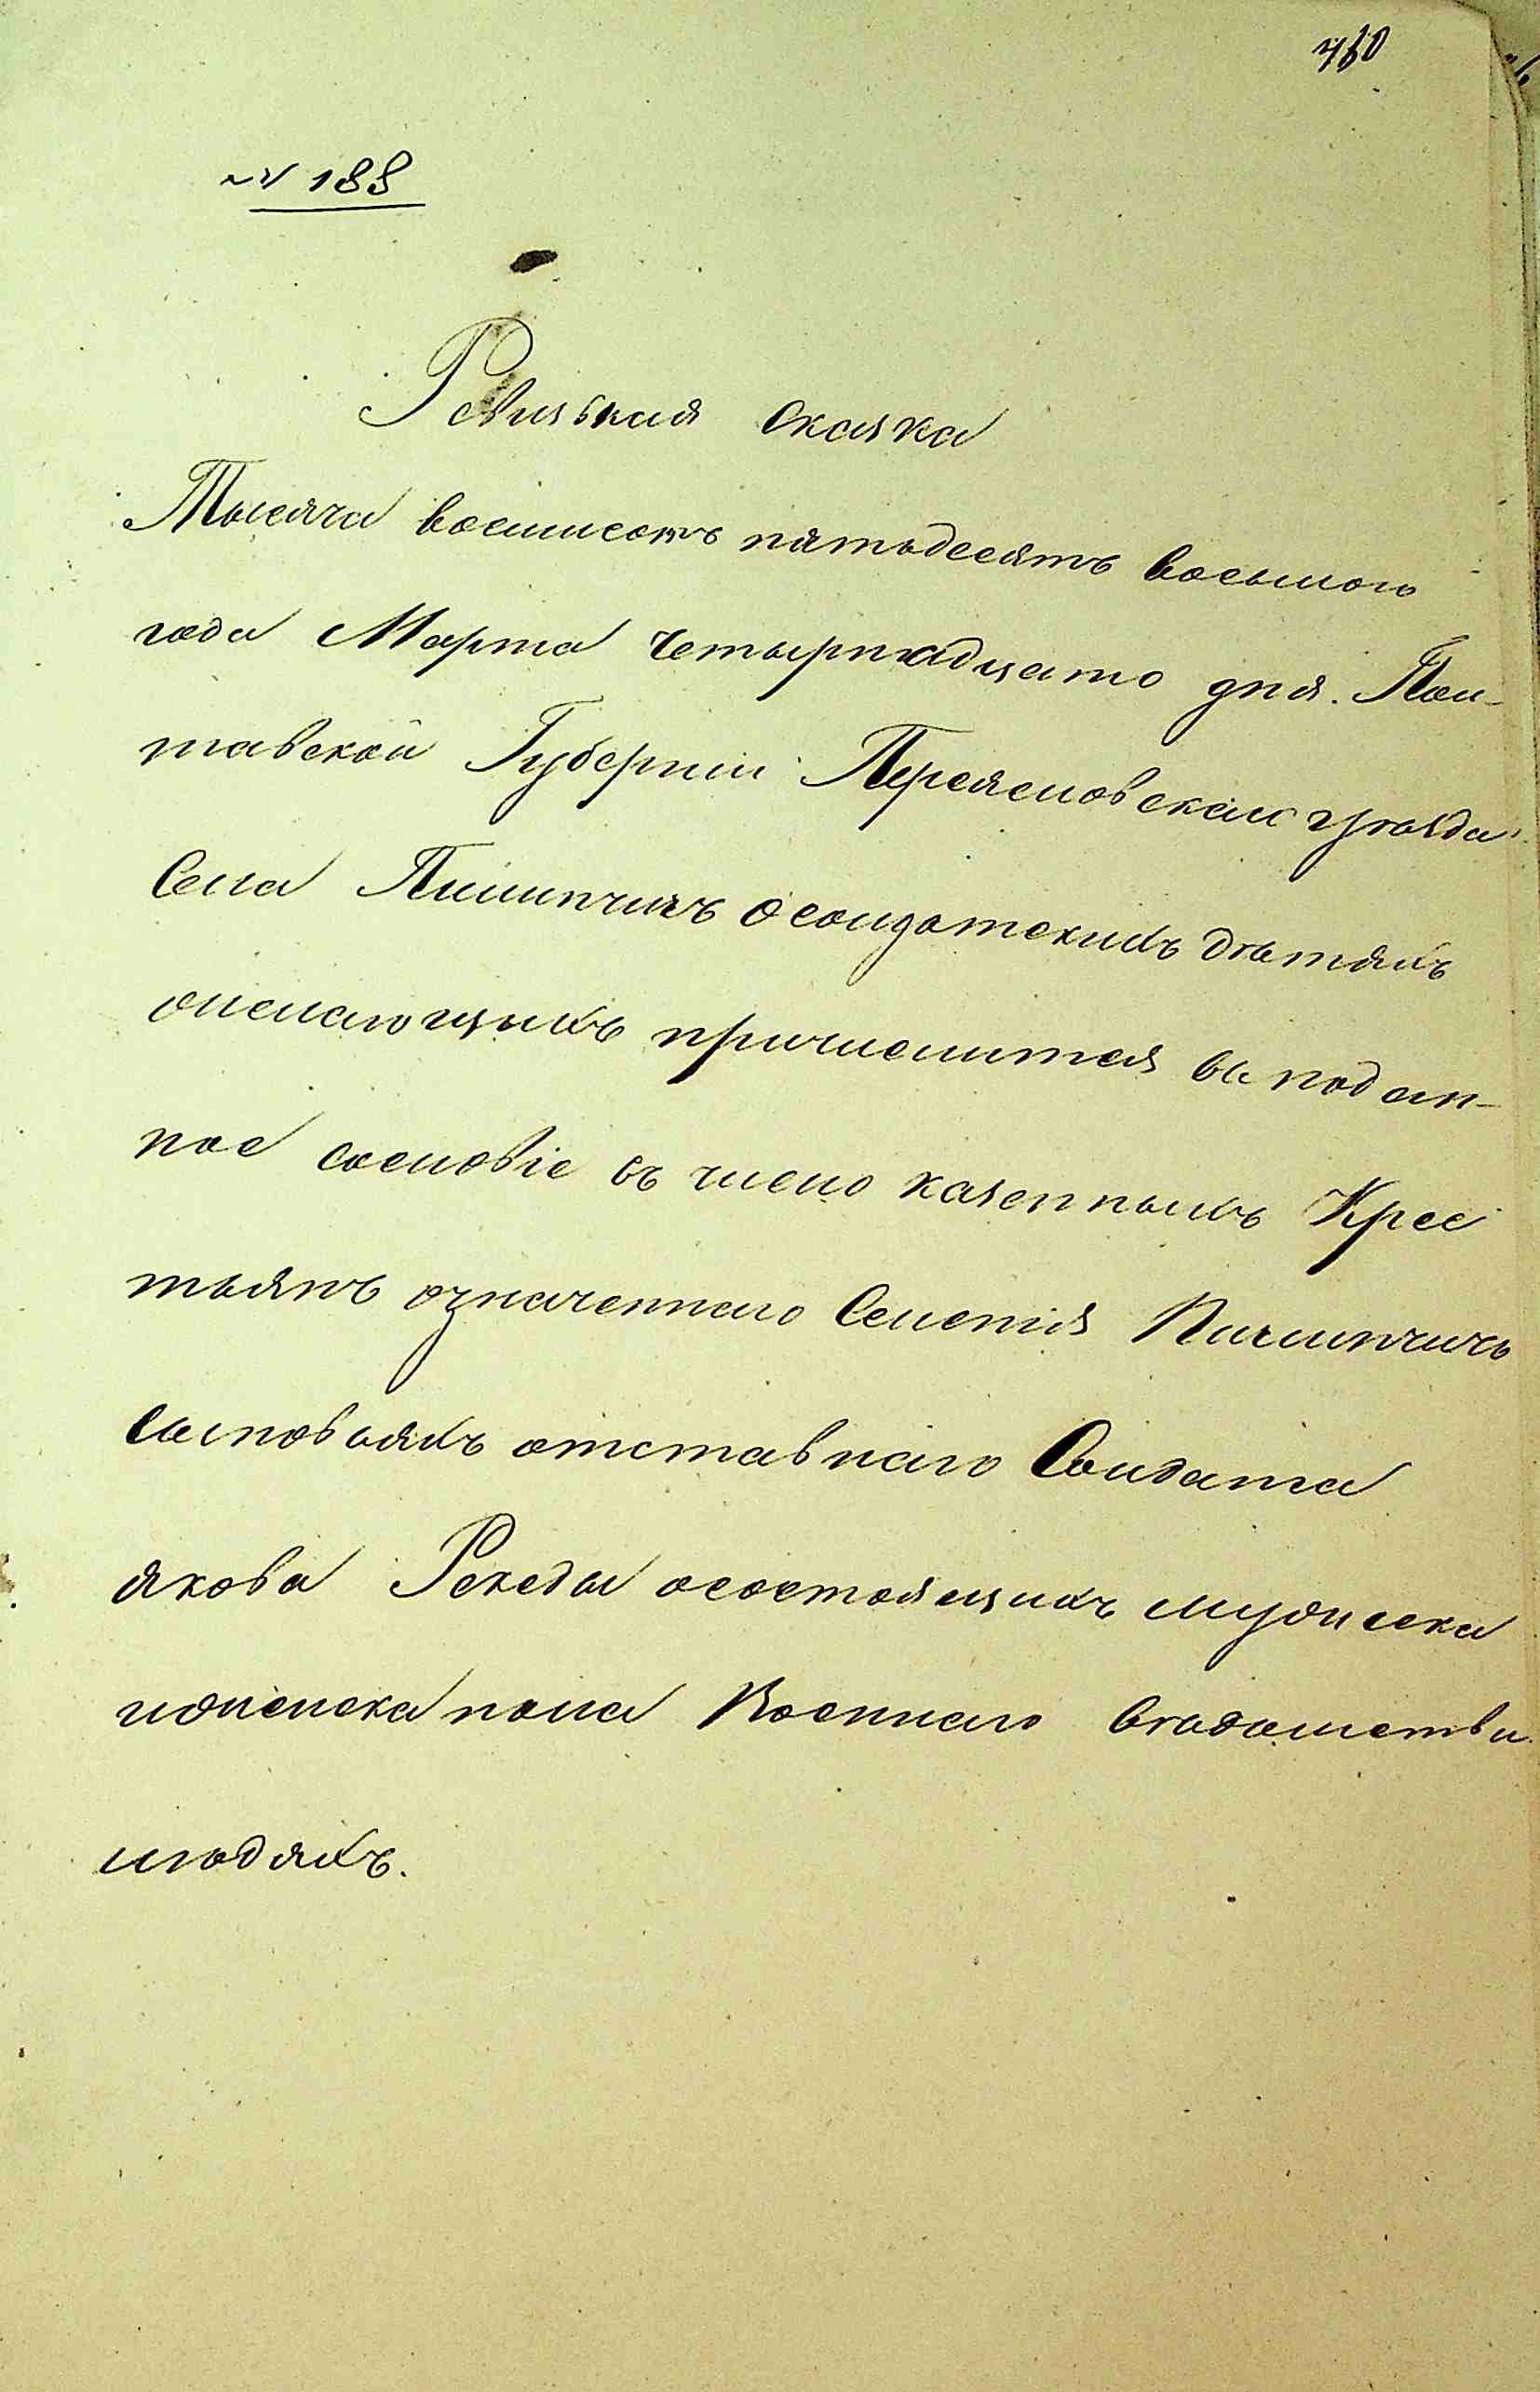 460
№ 188
Ревизькая сказка
Тысяча восимсотъ пятьдесятъ восьмого
года Марта Четырнадцато дня. Пол-
тавской Губерніи Переясловскаго уѣзда
Села Пилипчичъ осолдатскихъ дѣтяхъ
желающихъ причислится въ подат-
ное сословіе въ число казенныхъ Крес
тьянъ означеннаго Селенія Пилипчичъ
сыновьяхъ отставнаго Солдата
якова Рекеды осостоящихъ мужеска
иженска пола Военнаго Вѣдомства
людяхъ.